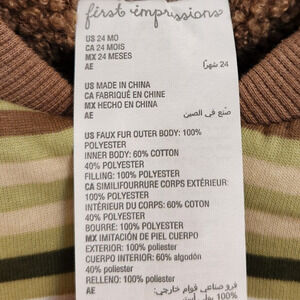 first impressions
US 24 MO
CA 24 MOIS
MX 24 MESES
AE
24 شهرًا
US MADE IN CHINA
CA FABRIQUÉ EN CHINE
MX HECHO EN CHINA
AE
صُنع في الصين
US FAUX FUR OUTER BODY: 100%
POLYESTER
INNER BODY: 60% COTTON
40% POLYESTER
FILLING: 100% POLYESTER
CA SIMILIFOURRURE CORPS EXTÉRIEUR:
100% POLYESTER
INTÉRIEUR DU CORPS: 60% COTON
40% POLYESTER
BOURRE: 100% POLYESTER
MX IMITACIÓN DE PIEL CUERPO
EXTERIOR: 100% poliester
CUERPO INTERIOR: 60% algodón
40% poliester
RELLENO: 100% poliester
AE
فرو صناعي قوام خارجي:
100%